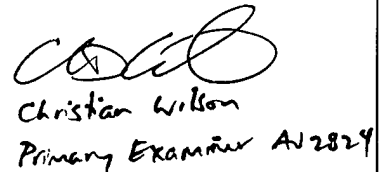 Christian Wilson
Primary Examiner AU 2824